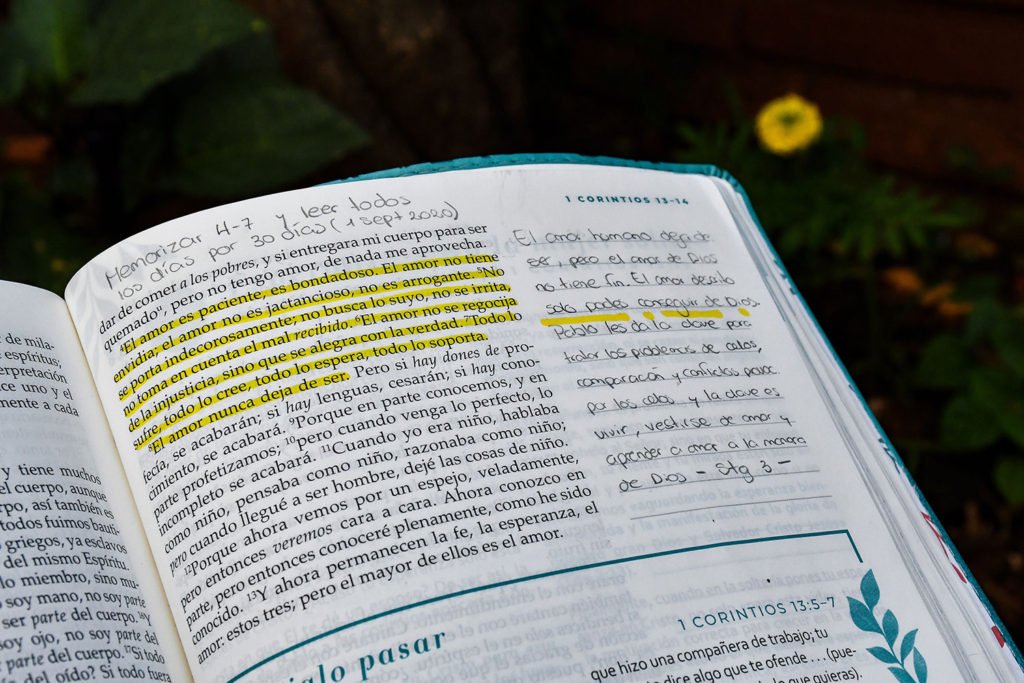 de mila-
espíritus,
erpretación
ce uno y el
mente a cada
y tiene muchos
el cuerpo, aunque
rpo, así también es
todos fuimos bauti-
griegos, ya esclavos
del mismo Espíritu.
lo miembro, sino mu-
soy mano, no soy parte
ser parte del cuerpo.
soy ojo, no soy parte
parte del cuerpo. Si todo
del oído? Si todo fuera
Memorizar 4-7 y leer todos
los días por 30 días (1 Sept 2020)
dar de comer a los pobres, y si entregara mi cuerpo para ser
quemado, pero no tengo amor, de nada me aprovecha.
⁴El amor es paciente, es bondadoso. El amor no tiene
envidia; el amor no es jactancioso, no es arrogante. ⁵No
se porta indecorosamente; no busca lo suyo, no se irrita,
no toma en cuenta el mal recibido. ⁶El amor no se regocija
de la injusticia, sino que se alegra con la verdad. ⁷Todo lo
sufre, todo lo cree, todo lo espera, todo lo soporta.
⁸El amor nunca deja de ser. Pero si hay dones de pro-
fecía, se acabarán; si hay lenguas, cesarán; si hay cono-
cimiento, se acabará. ⁹Porque en parte conocemos, y en
parte profetizamos; ¹⁰pero cuando venga lo perfecto, lo
incompleto se acabará. ¹¹Cuando yo era niño, hablaba
como niño, pensaba como niño, razonaba como niño;
pero cuando llegué a ser hombre, dejé las cosas de niño.
¹²Porque ahora vemos por un espejo, veladamente,
pero entonces veremos cara a cara. Ahora conozco en
parte, pero entonces conoceré plenamente, como he sido
conocido. ¹³Y ahora permanecen la fe, la esperanza, el
amor: estos tres; pero el mayor de ellos es el amor.
1 CORINTIOS 13-14
El amor humano deja de
ser, pero el amor de Dios
no tiene fin. El amor
solo puedes conseguir de Dios.
Pablo les da la clave para
todos los problemas de celos,
comparación y conflictos
por los celos y la clave es
vivir, vestirse de amor y
aprender a amar a la manera
de Dios - Stg 3 -
pasar
1 CORINTIOS 13:5-7
que hizo una compañera de trabajo; tu
dice algo que te ofende . . . (pue-
que quieras).